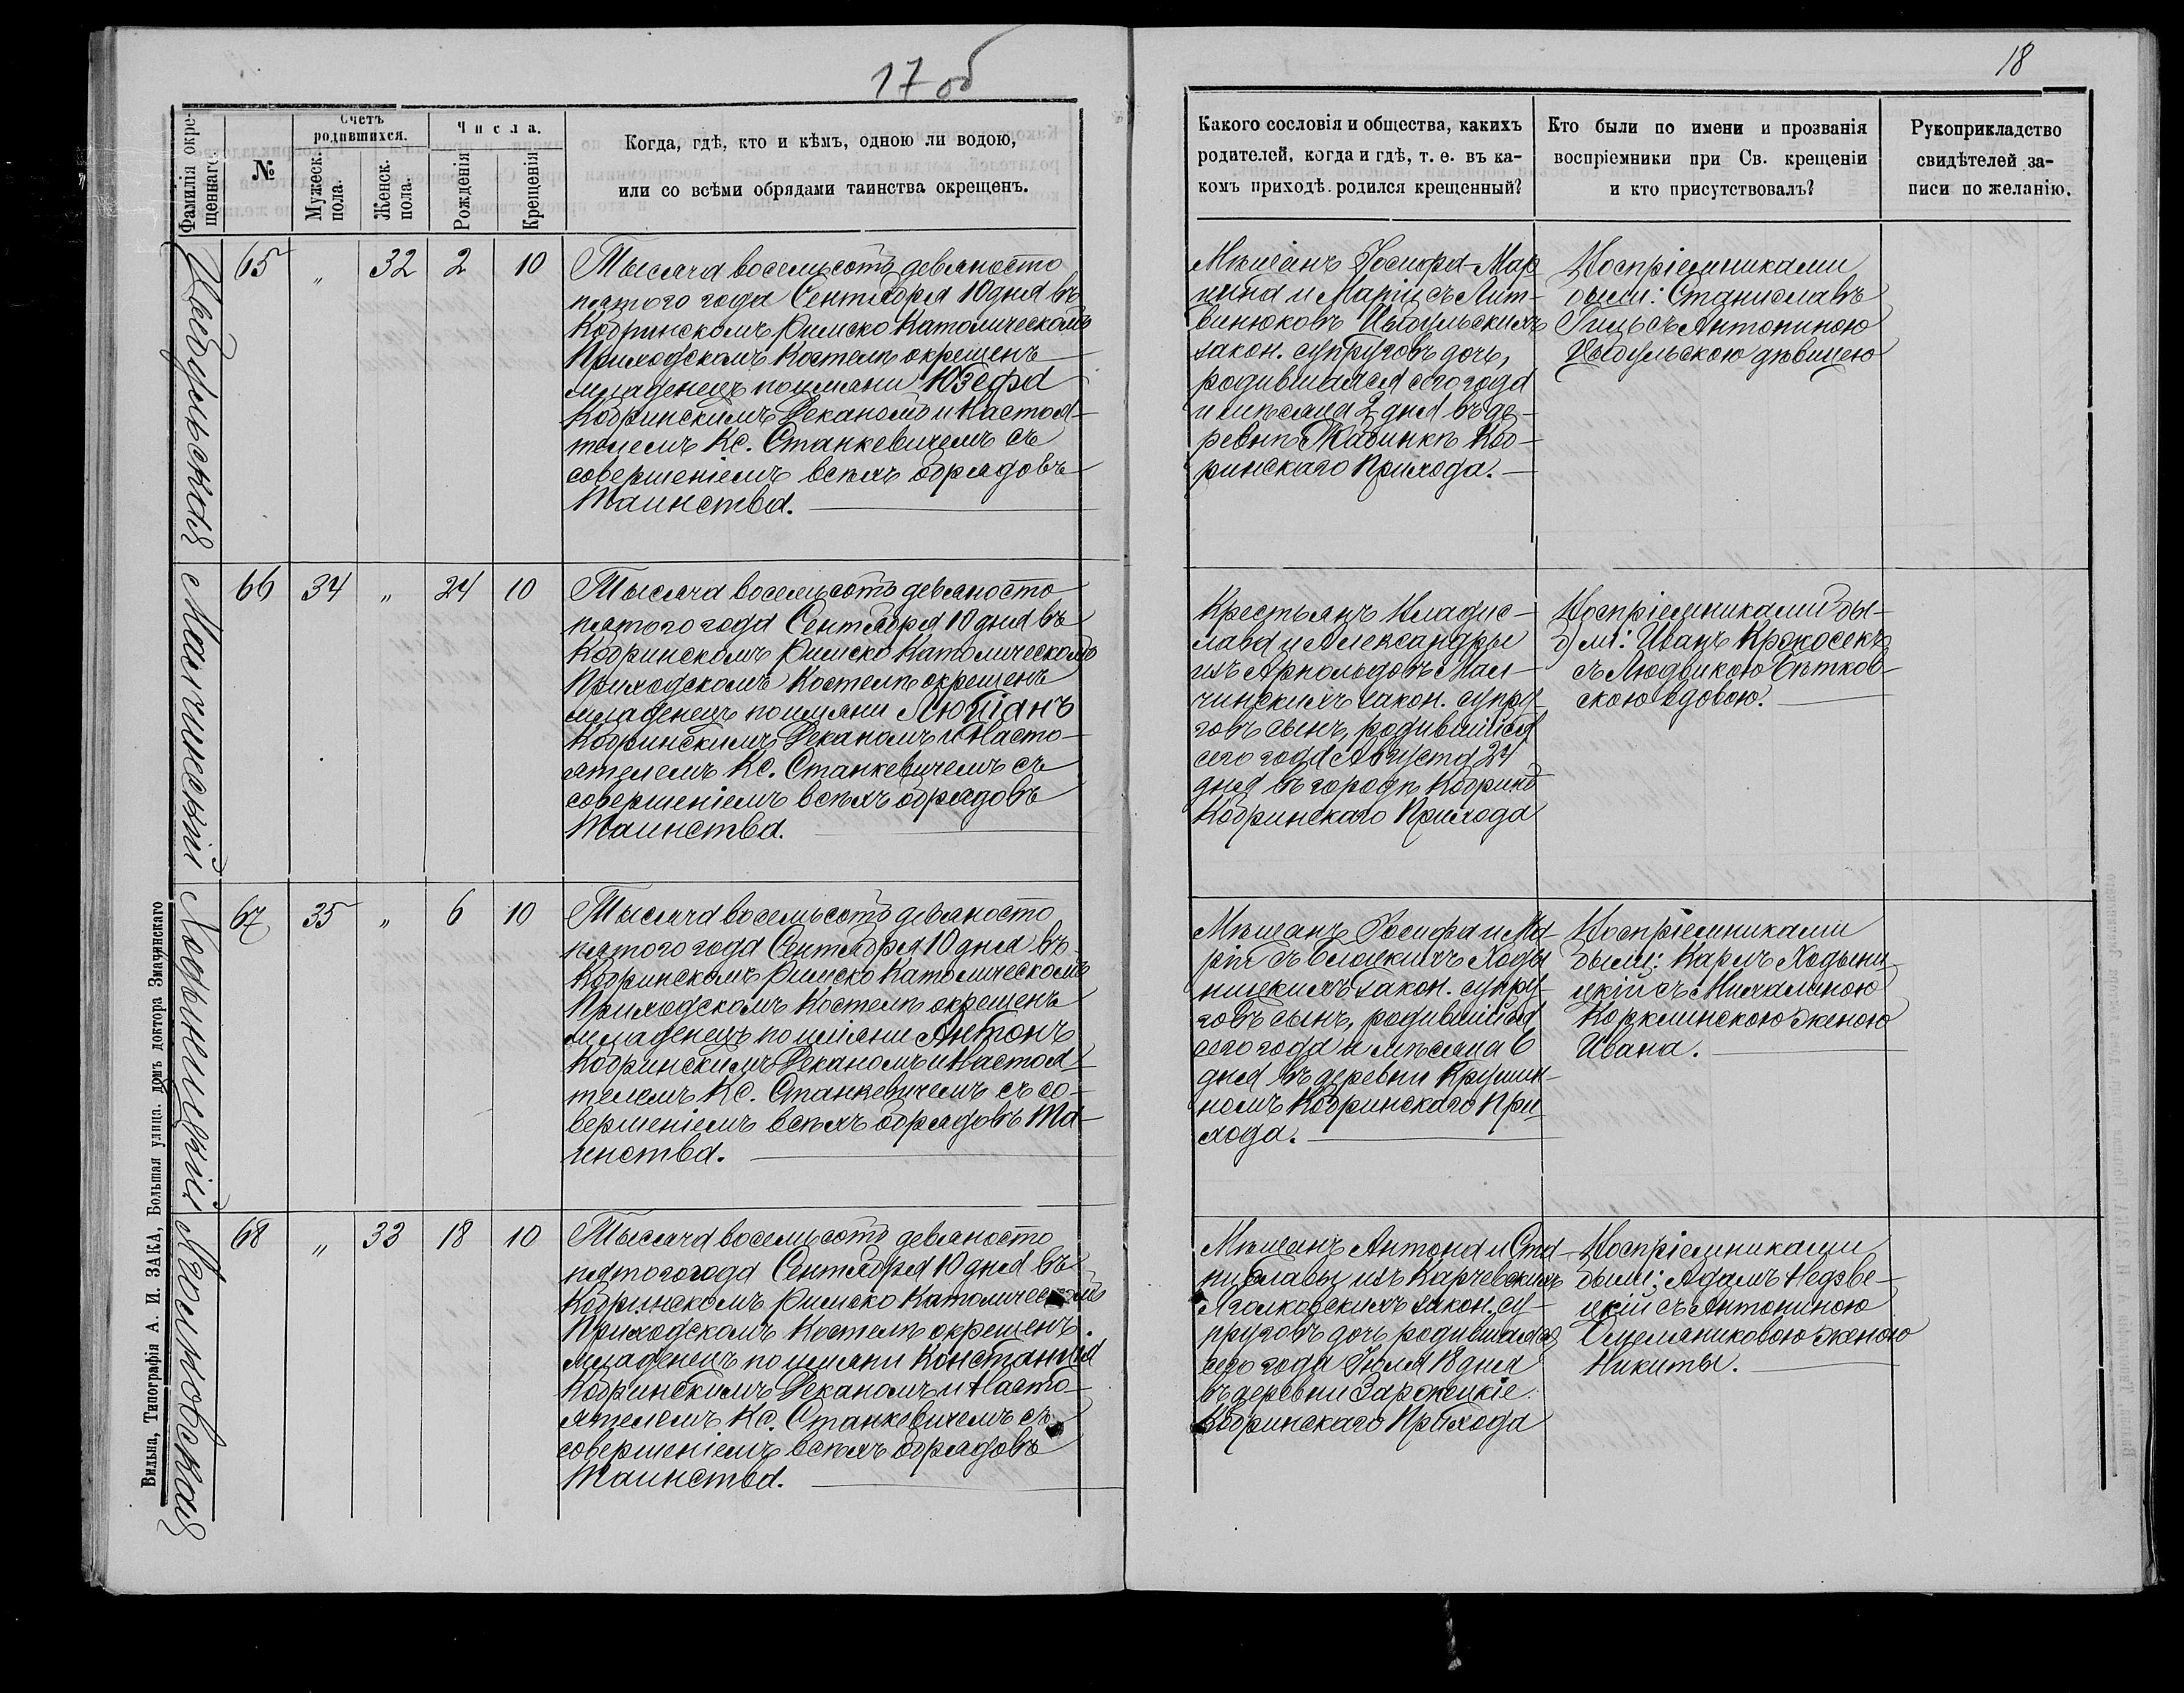 17 об
Фамилія окре-
щеннаго.
№
Счетъ
родившихся.
Мужеск.
пола.
Женск.
пола.
Числа.
Рожденія
Крещенія
Когда, гдѣ, кто и кѣмъ, одною ли водою,
или со всѣми обрядами таинства окрещенъ.
Цыбульская
65 " 32 2 10
Тысяча восемьсотъ девяносто
пятого года Сентября 10 дня въ
Кобринскомъ Римско Католическомъ
Приходскомъ Костелѣ окрещенъ
младенецъ по имяни Юзефа
Кобринскимъ Деканомъ и Настоя-
телемъ Кс. Станкевичемъ съ
совершеніемъ всѣхъ обрядовъ
Таинства.
Малчинскій
66 34 " 24 10
Тысяча восемьсотъ девяносто
пятого года Сентября 10 дня въ
Кобринскомъ Римско Католическомъ
Приходскомъ Костелѣ окрещенъ
младенецъ по имяни Люціанъ
Кобринскимъ Деканомъ и Насто-
ятелемъ Кс. Станкевичемъ съ
совершеніемъ всѣхъ обрядовъ
Таинства.
Ходыницкій
67 35 " 6 10
Тысяча восемьсотъ девяносто
пятого года Сентября 10 дня въ
Кобринскомъ Римско Католическомъ
Приходскомъ Костелѣ окрещенъ
младенецъ по имяни Антонъ
Кобринскимъ Деканомъ и Настоя-
телемъ Кс. Станкевичемъ съ со-
вершеніемъ всѣхъ обрядовъ Та-
инства.
68 " 33 18 10
Тысяча восемьсотъ девяносто
пятого года Сентября 10 дня въ
Кобринскомъ Римско Католическомъ
Приходскомъ Костелѣ окрещенъ
младенецъ по имяни Констанція
Кобринскимъ Деканомъ и Насто-
ятелемъ Кс. Станкевичемъ съ
совершеніемъ всѣхъ обрядовъ
Таинства.
Вильна, Типографія А. И. ЗАКА, Большая улица. домъ доктора Змачинскаго
18
Какого сословія и общества, какихъ
родителей, когда и гдѣ, т. е. въ ка-
комъ приходѣ родился крещенный?
Кто были по имени и прозванія
воспріемники при Св. крещеніи
и кто присутствовалъ?
Рукоприкладство
свидѣтелей за-
писи по желанію.
Мѣщанъ Іосифа-Мар
цина и Маріи съ Лит-
винюковъ Цыбульскихъ
закон. супруговъ дочь,
родившаяся сего года
и мѣсяца 2 дня въ де-
ревнѣ Жабинкѣ Коб-
ринскаго Прихода.
Воспріемниками
были: Станиславъ
съ Антониною
Цыбульскою дѣвицею
Крестьянъ Владис-
лава и Александры
изъ Арнольдовъ Мал-
чинскихъ закон. супру-
говъ сынъ, родившійся
сего года Августа 24
дня въ городѣ Кобринѣ
Кобринскаго Прихода
Воспріемниками бы-
ли: Иванъ Крокосекъ
съ Людвикою Бѣтков-
скою вдовою.
Мѣщанъ Іосифа и Ма
ріи Ходы
ницкихъ закон. супру-
говъ сынъ, родившійся
сего года и мѣсяца 6
дня въ деревни Крушин-
номъ Кобринскаго При
хода.
Воспріемниками
были: Карлъ Ходыни
цкій съ Михалиною
женою
Ивана.
Мѣщанъ Антона и Ста-
ниславы изъ Карчевскихъ
закон. су-
пруговъ дочь родившаяся
сего года Іюля 18 дня
въ деревни Заржецкіе
Кобринскаго Прихода
Воспріемниками
были: Адамъ Недзве-
цкій съ Антониною
Омеляниковою женою
Никиты.